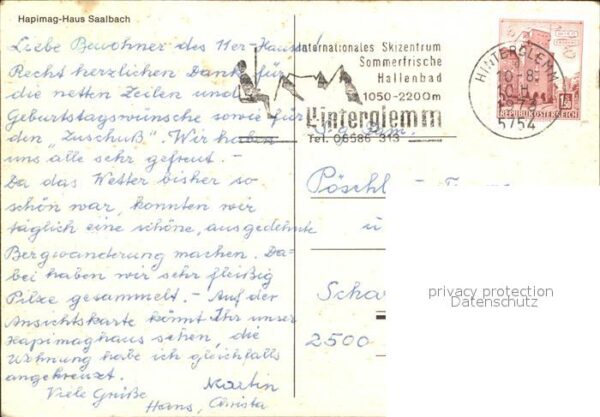 Hapimag-Haus Saalbach
Liebe Bewohner des 11er-Hauses!
Recht herzlichen Dank für
die netten Zeilen und
Geburtstagswünsche sowie für
den "Zuschuß". Wir haben
uns alle sehr gefreut. -
Da das Wetter bisher so
schön war, konnten wir
täglich eine schöne, ausgedehnte
Bergwanderung machen. Da-
bei haben wir sehr fleißig
Pilze gesammelt. - Auf der
Ansichtskarte könnt Ihr unser
Hapimaghaus sehen, die
Wohnung habe ich gleichfalls
angekreuzt.
Viele Grüße Martin
Hans, Christa
Internationales Skizentrum
Sommerfrische
Hallenbad
1050-2200m
Hinterglemm
Tel. 06586 313
HINTERGLEMM
5754
REPUBLIK ÖSTERREICH
Pöschl
u
Scha
2500
privacy protection
Datenschutz